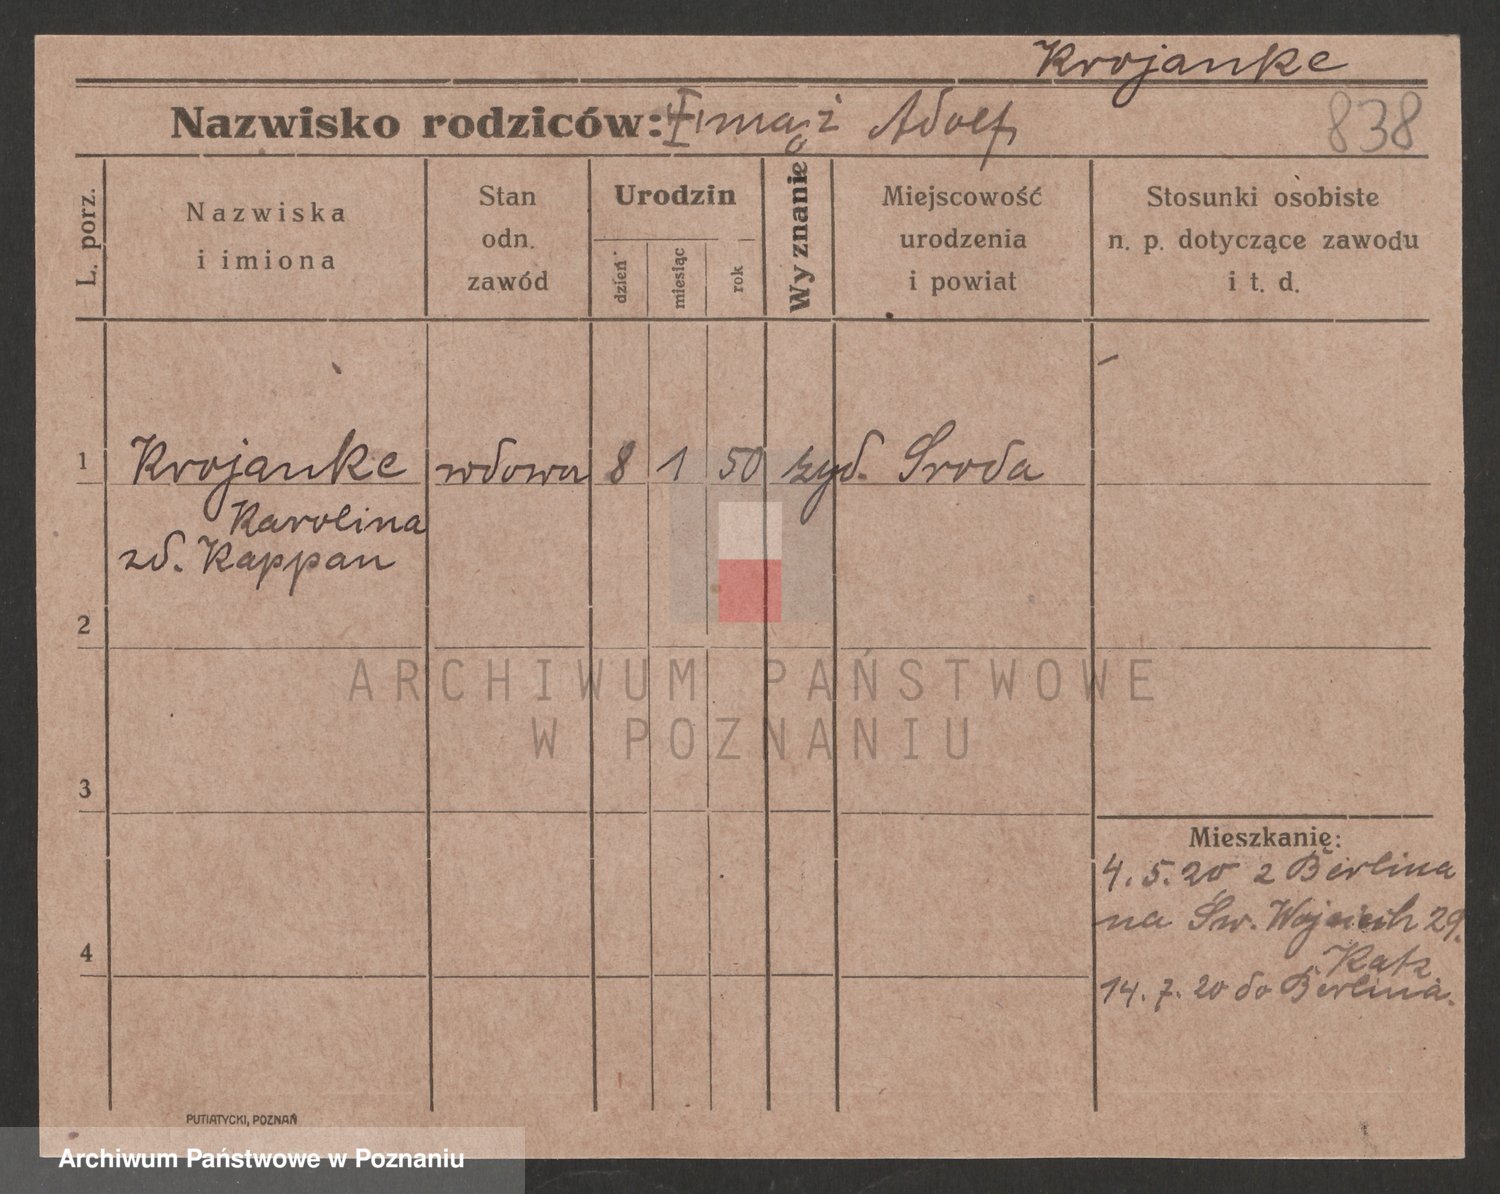 Krojanke
Nazwisko rodziców: I mąż Adolf
838
L. porz.
Nazwiska
i imiona
Stan
odn.
zawód
Urodzin
dzień
miesiąc
rok
Wyznanie
Miejscowość
urodzenia
i powiat
Stosunki osobiste
n. p. dotyczące zawodu
i t. d.
1 Krojanke wdowa 8 1 50 żyd. Sroda
Karolina
zd. Kappan
2
3
4
Mieszkanię:
4. 5. 20 z Berlina
na Św. Wojciech 29.
Katz
14. 7. 20 do Berlina.
ARCHIWUM PAŃSTWOWE
W POZNANIU
PUTIATYCKI, POZNAŃ
Archiwum Państwowe w Poznaniu